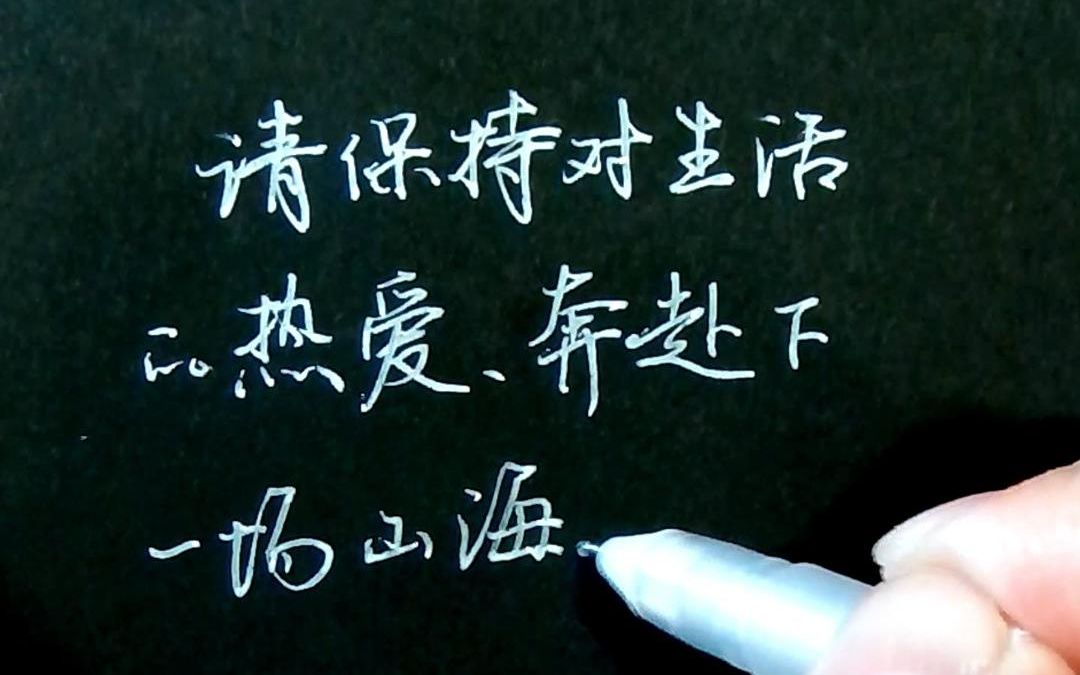 请保持对生活
的热爱、奔赴下
一场山海